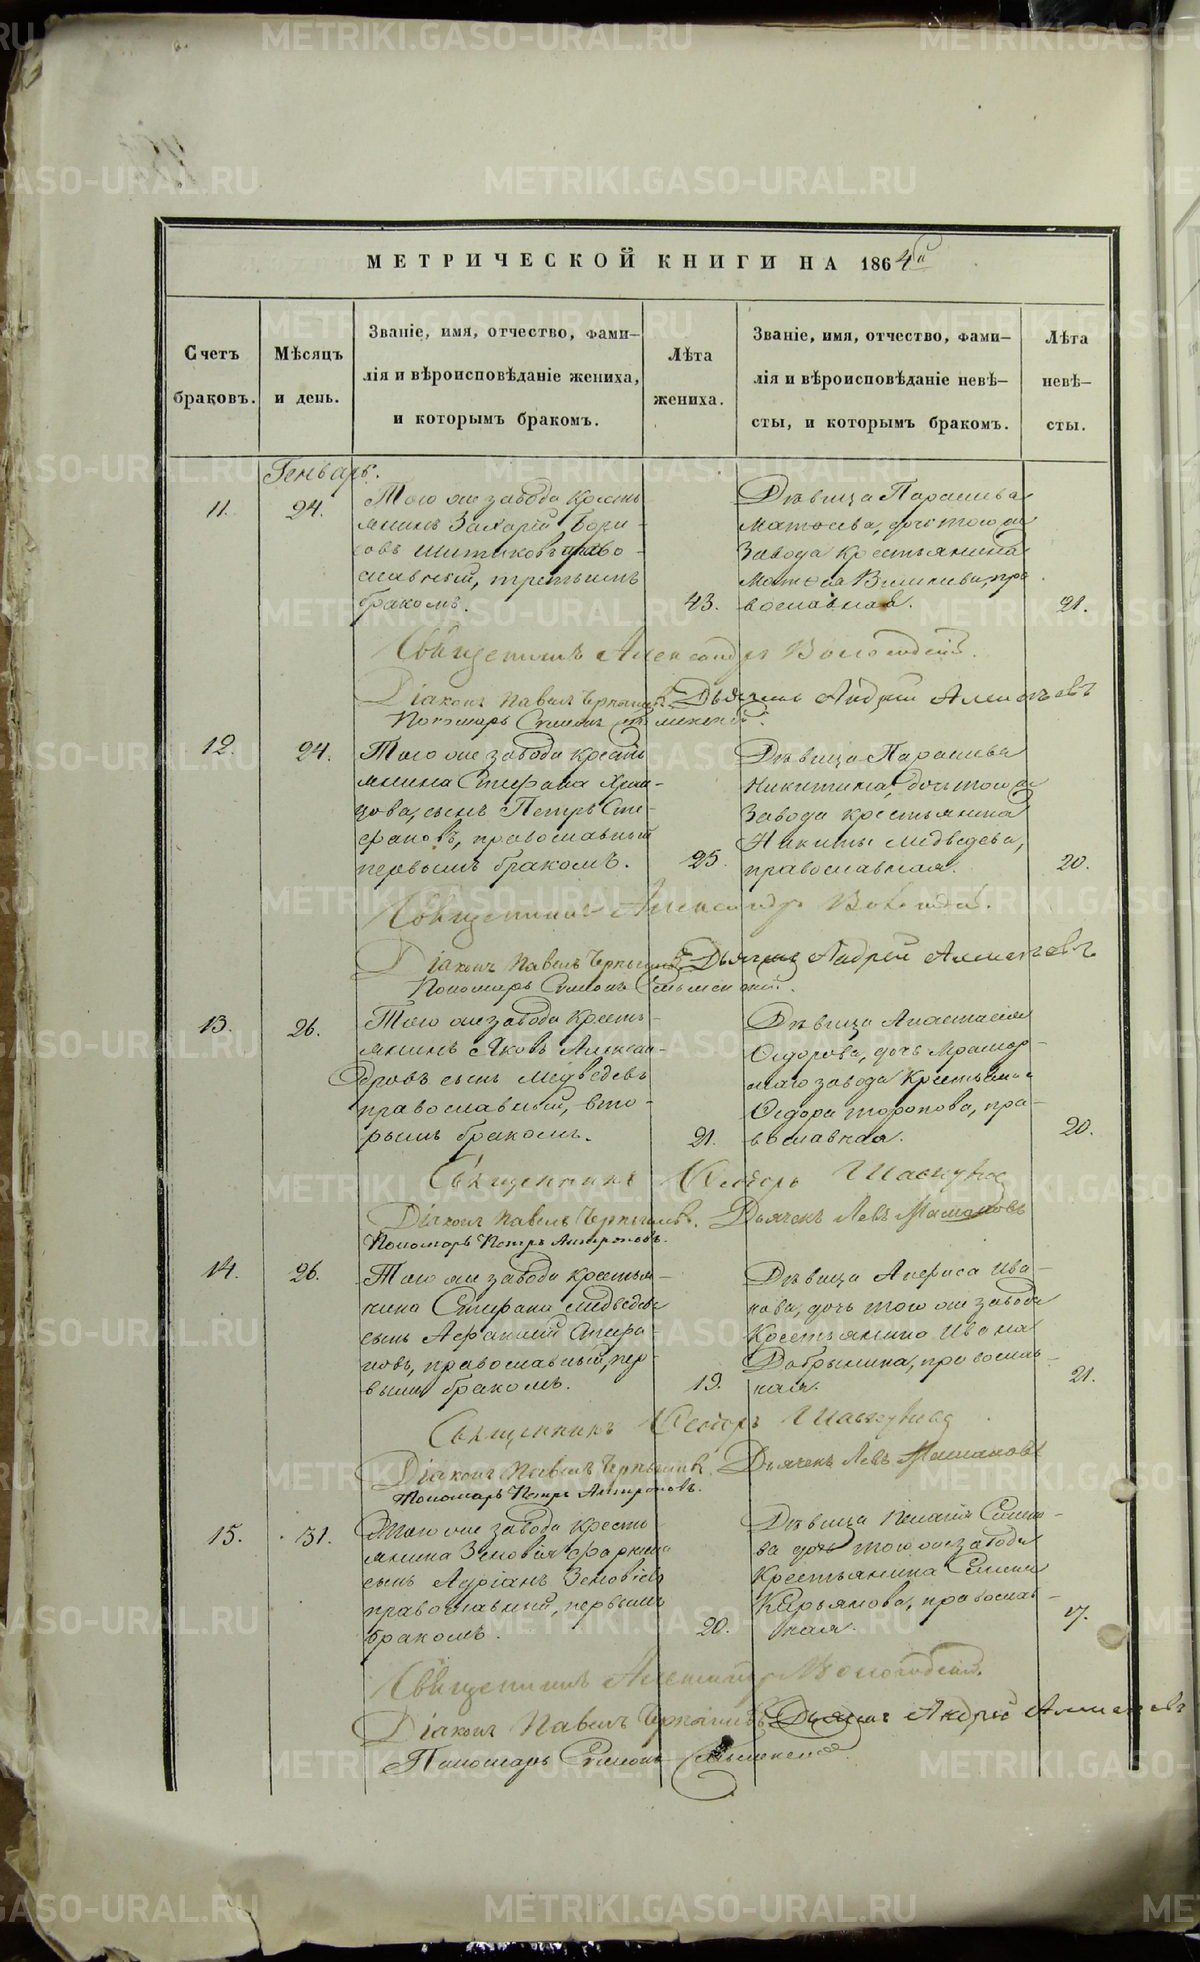 МЕТРИЧЕСКОЙ КНИГИ НА 1864й
Счетъ браковъ.
Мѣсяцъ и день.
Званіе, имя, отчество, фами-
лія и вѣроисповѣданіе жениха,
и которымъ бракомъ.
Лѣта жениха.
Званіе, имя, отчество, фами-
лія и вѣроисповѣданіе невѣ-
сты, и которымъ бракомъ.
Лѣта невѣ-
сты.
Генварь.
11.
24.
Того же завода кресть
янинъ Захарій Бори-
совъ Шитиковъ право-
славный, третьимъ
бракомъ.
43.
Дѣвица Параскева
Матѳеева, дочь того же
завода крестьянина
Матѳея, пра
вославная.
21.
Священникъ Александръ Вологодскій.
Діаконъ Павелъ Дьячекъ Андрей
Пономарь Симонъ
12.
24.
Того же завода кресть
янина Стефана
сынъ Петръ Сте-
фановъ, православный
первымъ бракомъ.
25.
Дѣвица Параскева
Никитина, дочь того же
завода крестьянина
Никиты Медведева,
православная.
20.
Священникъ Александръ
Діаконъ Павелъ Дьячекъ Андрей
Пономарь Симонъ
13.
26.
Того же завода кресть-
янинъ Яковъ Алексан-
дровъ сынъ Медведевъ
православный, вто-
рымъ бракомъ.
21.
Дѣвица Анастасія
Ѳедорова, дочь Мрамор-
наго завода крестьянина
Ѳедора Торопова, пра-
вославная.
20.
Священникъ Несторъ
Діаконъ Павелъ Дьячекъ Левъ
Пономарь Петръ Антроповъ.
14.
26.
Того же завода крестья-
нина Стефана Медведева
сынъ Афанасій Стефа-
новъ, православный, пер-
вымъ бракомъ.
19.
Дѣвица Анфиса Ива-
нова, дочь того же завода
крестьянина Ивана
Добрынина, православ-
ная.
21.
Священникъ Несторъ
Діаконъ Павелъ Дьячекъ Левъ
Пономарь Петръ Антроповъ.
15.
31.
Того же завода кресть
янина Зеновія
сынъ Адріанъ Зеновіевъ
православный, первымъ
бракомъ.
20.
Дѣвица
дочь того же завода
крестьянина
православ-
ная.
17.
Священникъ Александръ Вологодскій.
Діаконъ Павелъ Дьячекъ Андрей
Пономарь Симонъ
METRIKI.GASO-URAL.RU